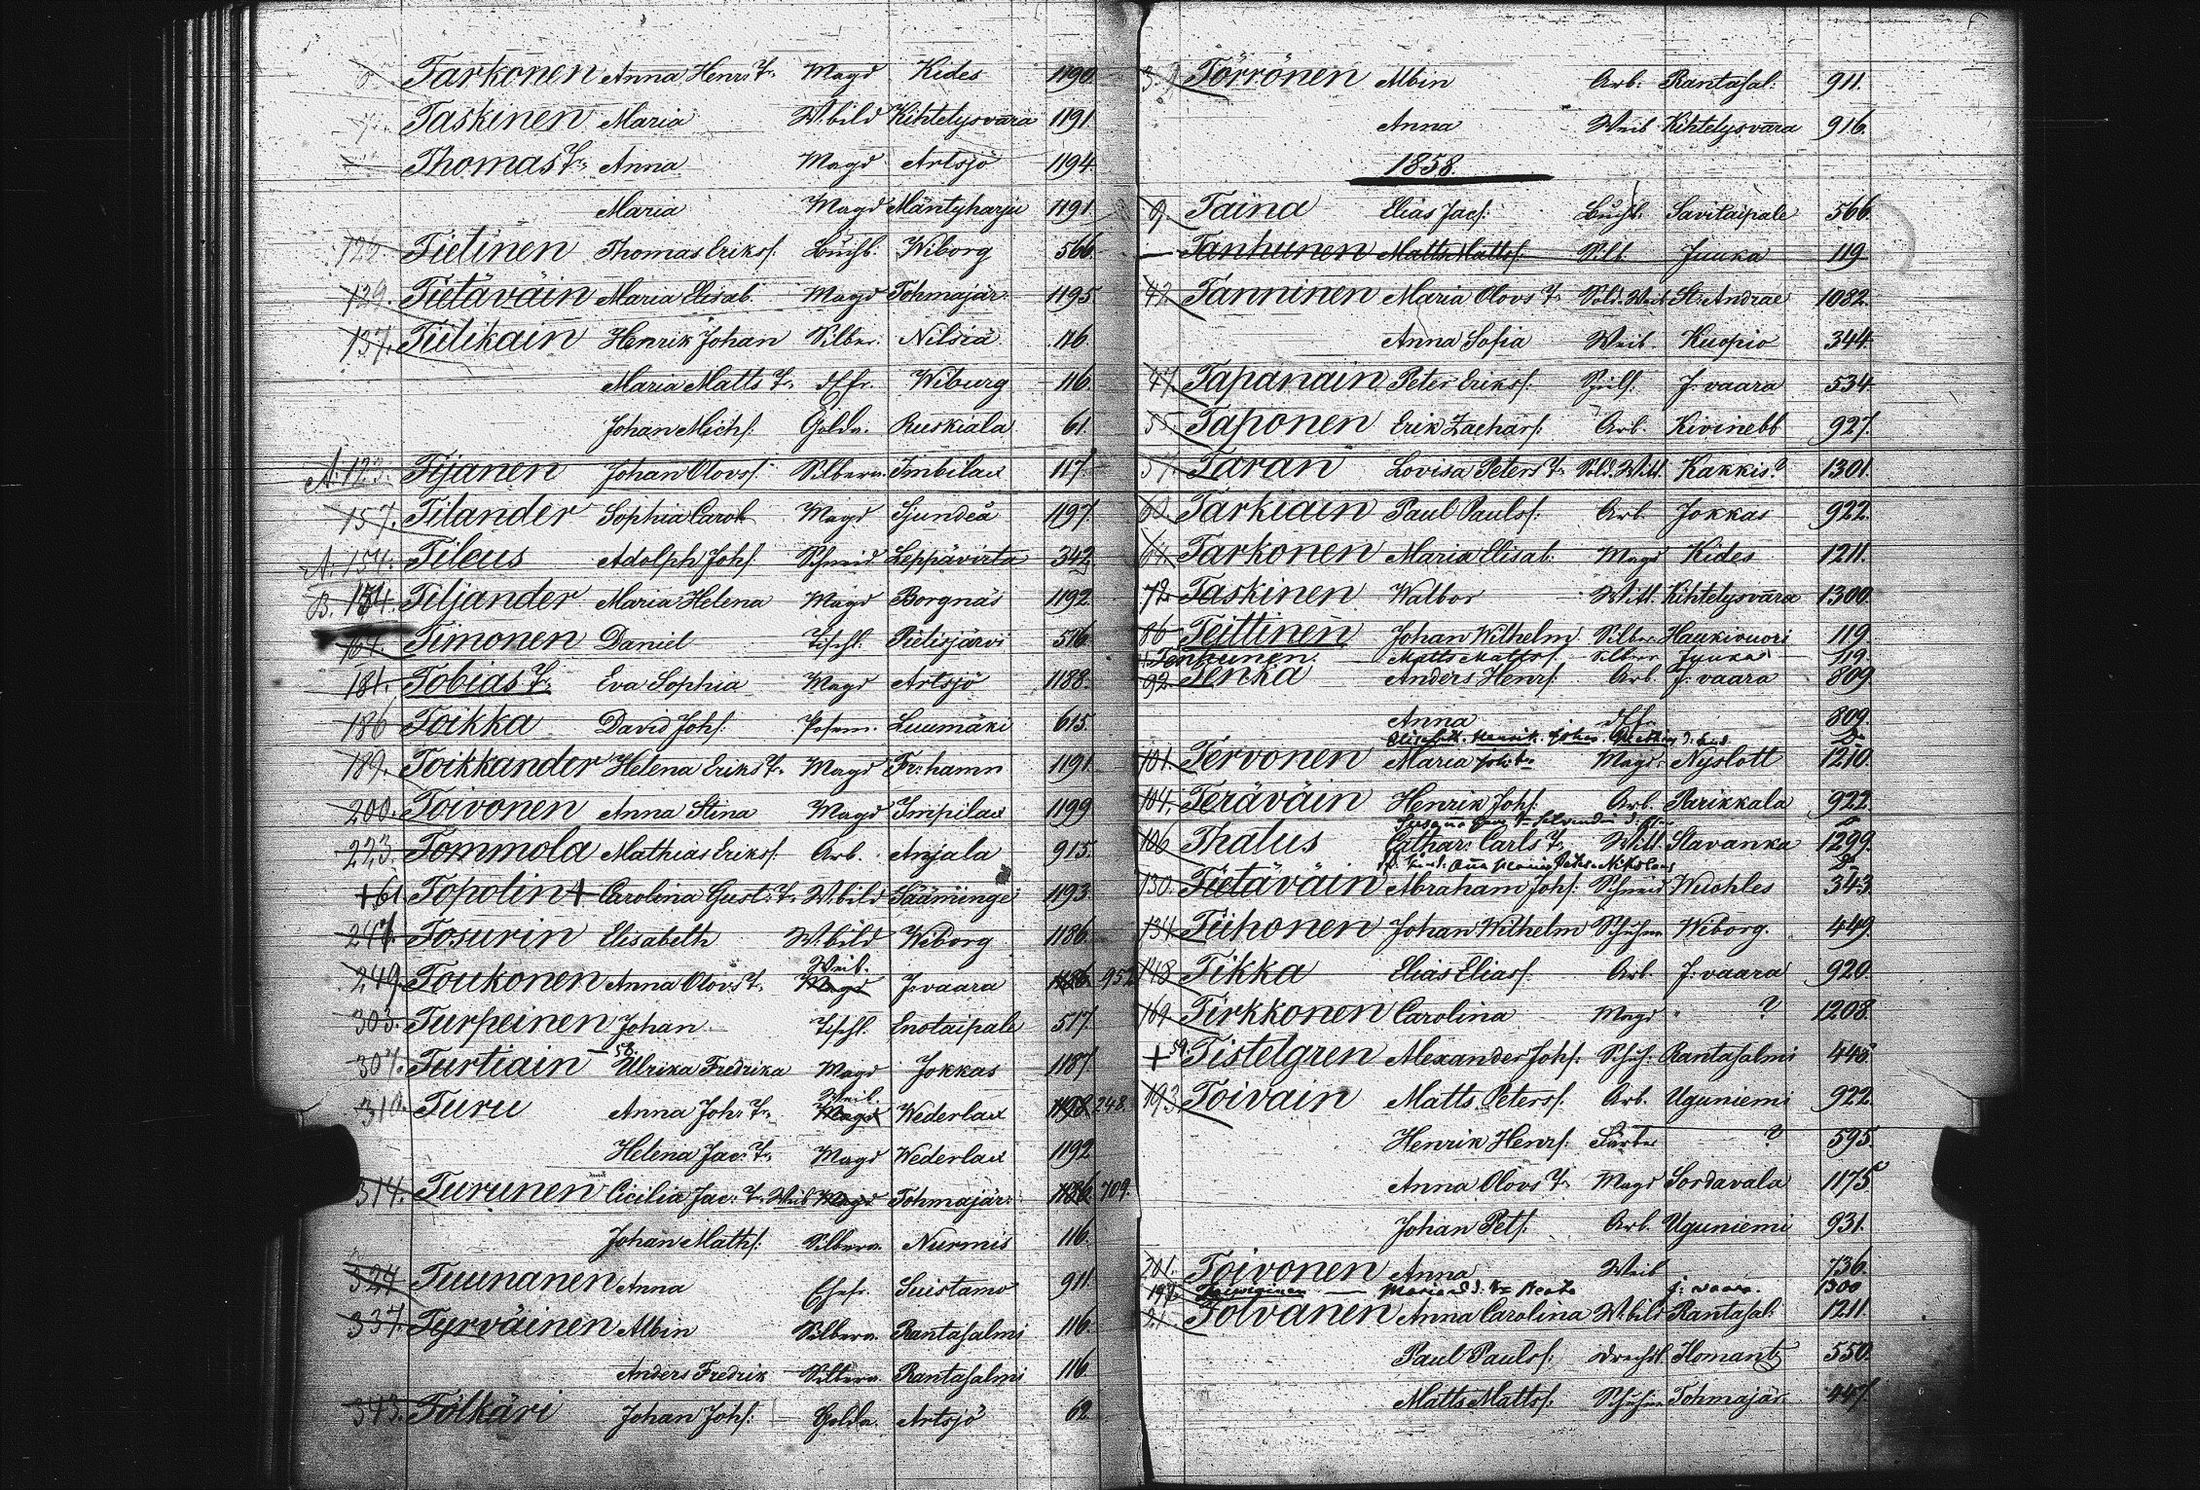 Tarkonen Anna Henrs Tr Magd Kides 1190
Taskinen Maria W.bild Kihtelysvara 1191
Thomas Tr Anna Magd Artsjö 1194
Maria Magd Mäntyharju 1191
Tietinen Thomas Erikss. Buchb. Wiborg 566
129. Tietäväin Maria Elisab. Magd Tohmajär: 1195
137. Tiilikain Henrik Johan Silber. Nilsiä 116
Maria Matts Tr Wiburg 116
Johan Michs. Golda. Ruskiala 61
A. 123. Tijanen Johan Olovs. Silbera. Imbilax 117
157. Tilander Sophia Carol. Magd Sjundeå 1197
A. 154. Tileus Adolph Johs. Schmid Leppävirta 342
B. 154. Tiljander Maria Helena Magd Borgnäs 1192
164. Timonen Daniel Tischl. Pielisjärvi 516
181. Tobias Tr. Eva Sophia Magd Artsjö 1188
186 Toikka David Johs. Posam. Luumäki 615
189. Toikkander Helena Eriks Tr Magd Fr:hamn 1191
200. Toivonen Anna Stina Magd Impilax 1199
223. Tommola Mathias Eriks. Arb. Anjala 915
+61. Topolin + Carolina Gust. Tr W.bild Säämingé 1193
247. Tosurin Elisabeth W.bild Wiborg 1186
Weib.
249. Toukonen Anna Olovs Tr Magd J:vaara 1186 952
303. Turpeinen Johan Tischl. Enotaipale 517
307. Turtiain Ulrika Fredrika Magd Jokkas 1187
Weib.
310. Turu Anna Joh: Tr Magd Wederlax 1198 248.
Helena Jac: Tr Magd Wederlax 1192
314. Turunen Cicilia Jac: Tr Weib Magd Tohmajär: 1186 709.
Johan Maths. Silbera. Nurmis 116
324 Tuunanen Anna Ehefr. Suistamo 911
337. Tyrväinen Albin Silbera. Rantasalmi 116
Anders Fredrik Silbera. Rantasalmi 116
343. Tölkäri Johan Johs. Golda. Artsjö 62
Törrönen Albin Arb: Rantasal: 911.
Anna Weib Kihtelysvara 916.
1858.
9. Taina Elias Jacs. Buchb. Savitaipale 566.
Tanhunen Matts Matts. Silb. Juuka 119
42 Tanninen Maria Olovs Tr Sold. Weib St. Andrae 1082
Anna Sofia Weib. Kuopio 344
47 Tapanain Peter Eriks. J:vaara 534
55. Taponen Erik Zachars. Arb. Kivinebb 927.
57. Taran Lovisa Peters Tr Sold. Witt. Kakkis? 1301.
60 Tarkiain Paul Pauls. Arb. Jokkas 922.
64 Tarkonen Maria Elisab. Magd Kides 1211.
72 Taskinen Walbor Witt. Kihtelysvara 1300.
86 Teittinen Johan Wilhelm Silber Haukivuori 119.
Tenhunen. Matts Matts. Silbera Juuka 119.
92. Tenka Anders Henrs. Arb. J:vaara 809
Anna 809.
101. Tervonen Maria Magd. Nyslott 1210.
104. Teräväin Henrik Johs. Arb. Parikkala 922.
106 Thalus Cathar: Carls Tr Witt. Slavanka 1299.
130. Tietäväin Abraham Johs: Schmid Wiohles 343
134. Tiihonen Johan Wilhelm Schuhm Wiborg. 449.
148 Tikka Elias Elias. Arb. J:vaara 920.
169 Tirkkonen Carolina Magd ? 1208.
+ 59. Tistelgren Alexander Johs: Schuh: Rantasalmi 448.
193. Toivain Matts Peters. Arb. Uguniemi 922.
Henrik Henrs. Färber ? 595
Anna Olovs Tr Magd Sordavala 1175
Johan Pets. Arb. Uguniemi 931.
201. Toivonen Anna Weib 736.
J: vaara. 1300
Tolvanen Anna Carolina W.bild Rantasal: 1211.
Paul Pauls. Drechsl. Ilomants 550.
Matts Matts. Schuhm Tohmajär. 447.